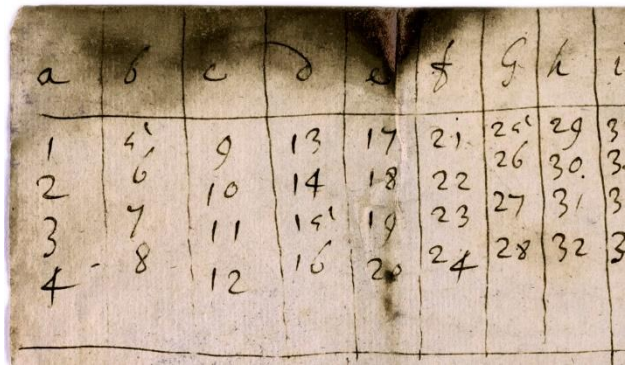 a b c d e f g h i
1 5 9 13 17 21 25 29
2 6 10 14 18 22 26 30
3 7 11 15 19 23 27 31
4 8 12 16 20 24 28 32